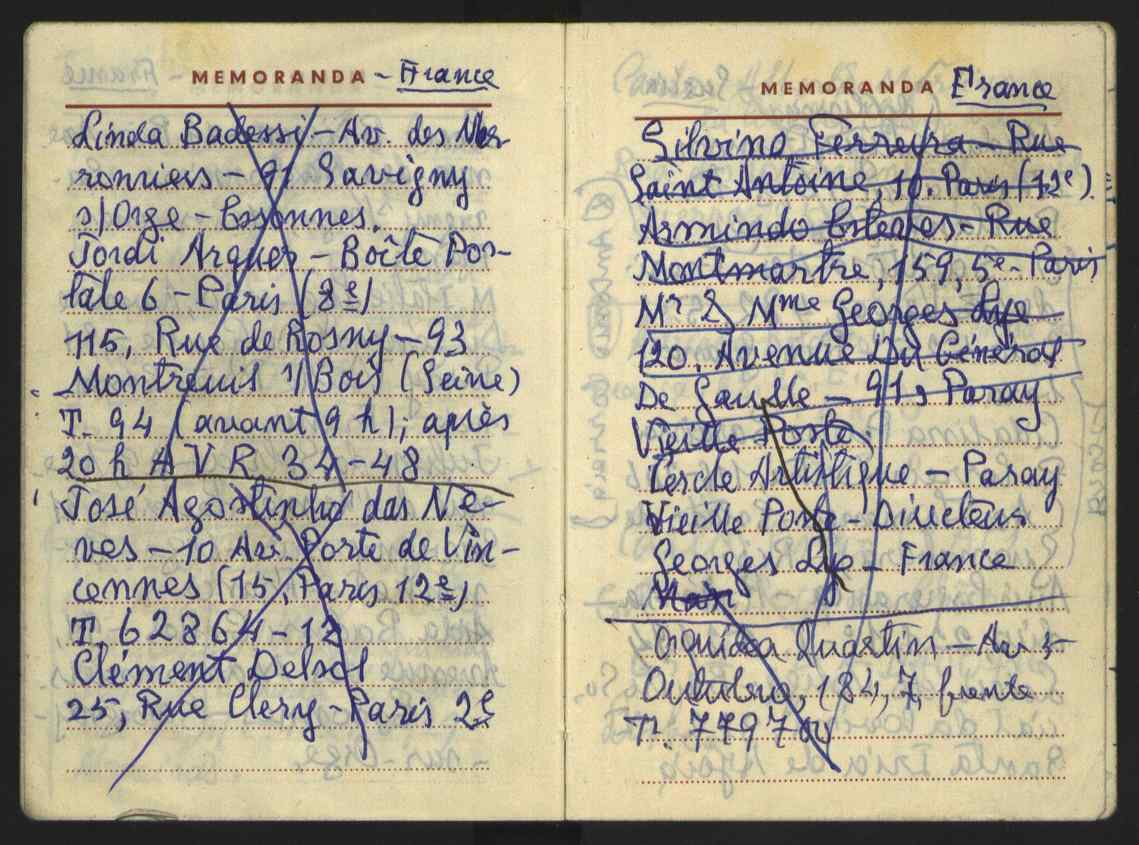 MEMORANDA - France
Linda Badessi - Av. des Mer
ronniers - 91 Savigny
s/Orge - Essonnes.
Jordi Arquer - Boîte Pos-
tale 6 - Paris (8e)
115, Rue de Rosny - 93
Montreuil s/Bois (Seine)
T. 94 (avant 9 h); après
20 h A V R 34-48
José Agostinho das Ne-
ves - 10 Av. Porte de Vin-
cennes (15, Paris 12e)
T. 62864-12
Clément Delsol
25, Rue Clery - Paris 2e
MEMORANDA France
Silvino Ferreira - Rue
Saint Antoine, 10. Paris (12e).
Armindo Esteves - Rue
Montmartre, 159, 5e - Paris
Mr & Mme Georges Lye
120, Avenue Du Général
De Gaulle - 91, Paray
Vieille Poste
Cercle Artistique - Paray
Vieille Poste - Directeur
Georges Lye - France
Orquídea Quartin - Av. 5
Outubro, 184, 7, frente
T. 7797